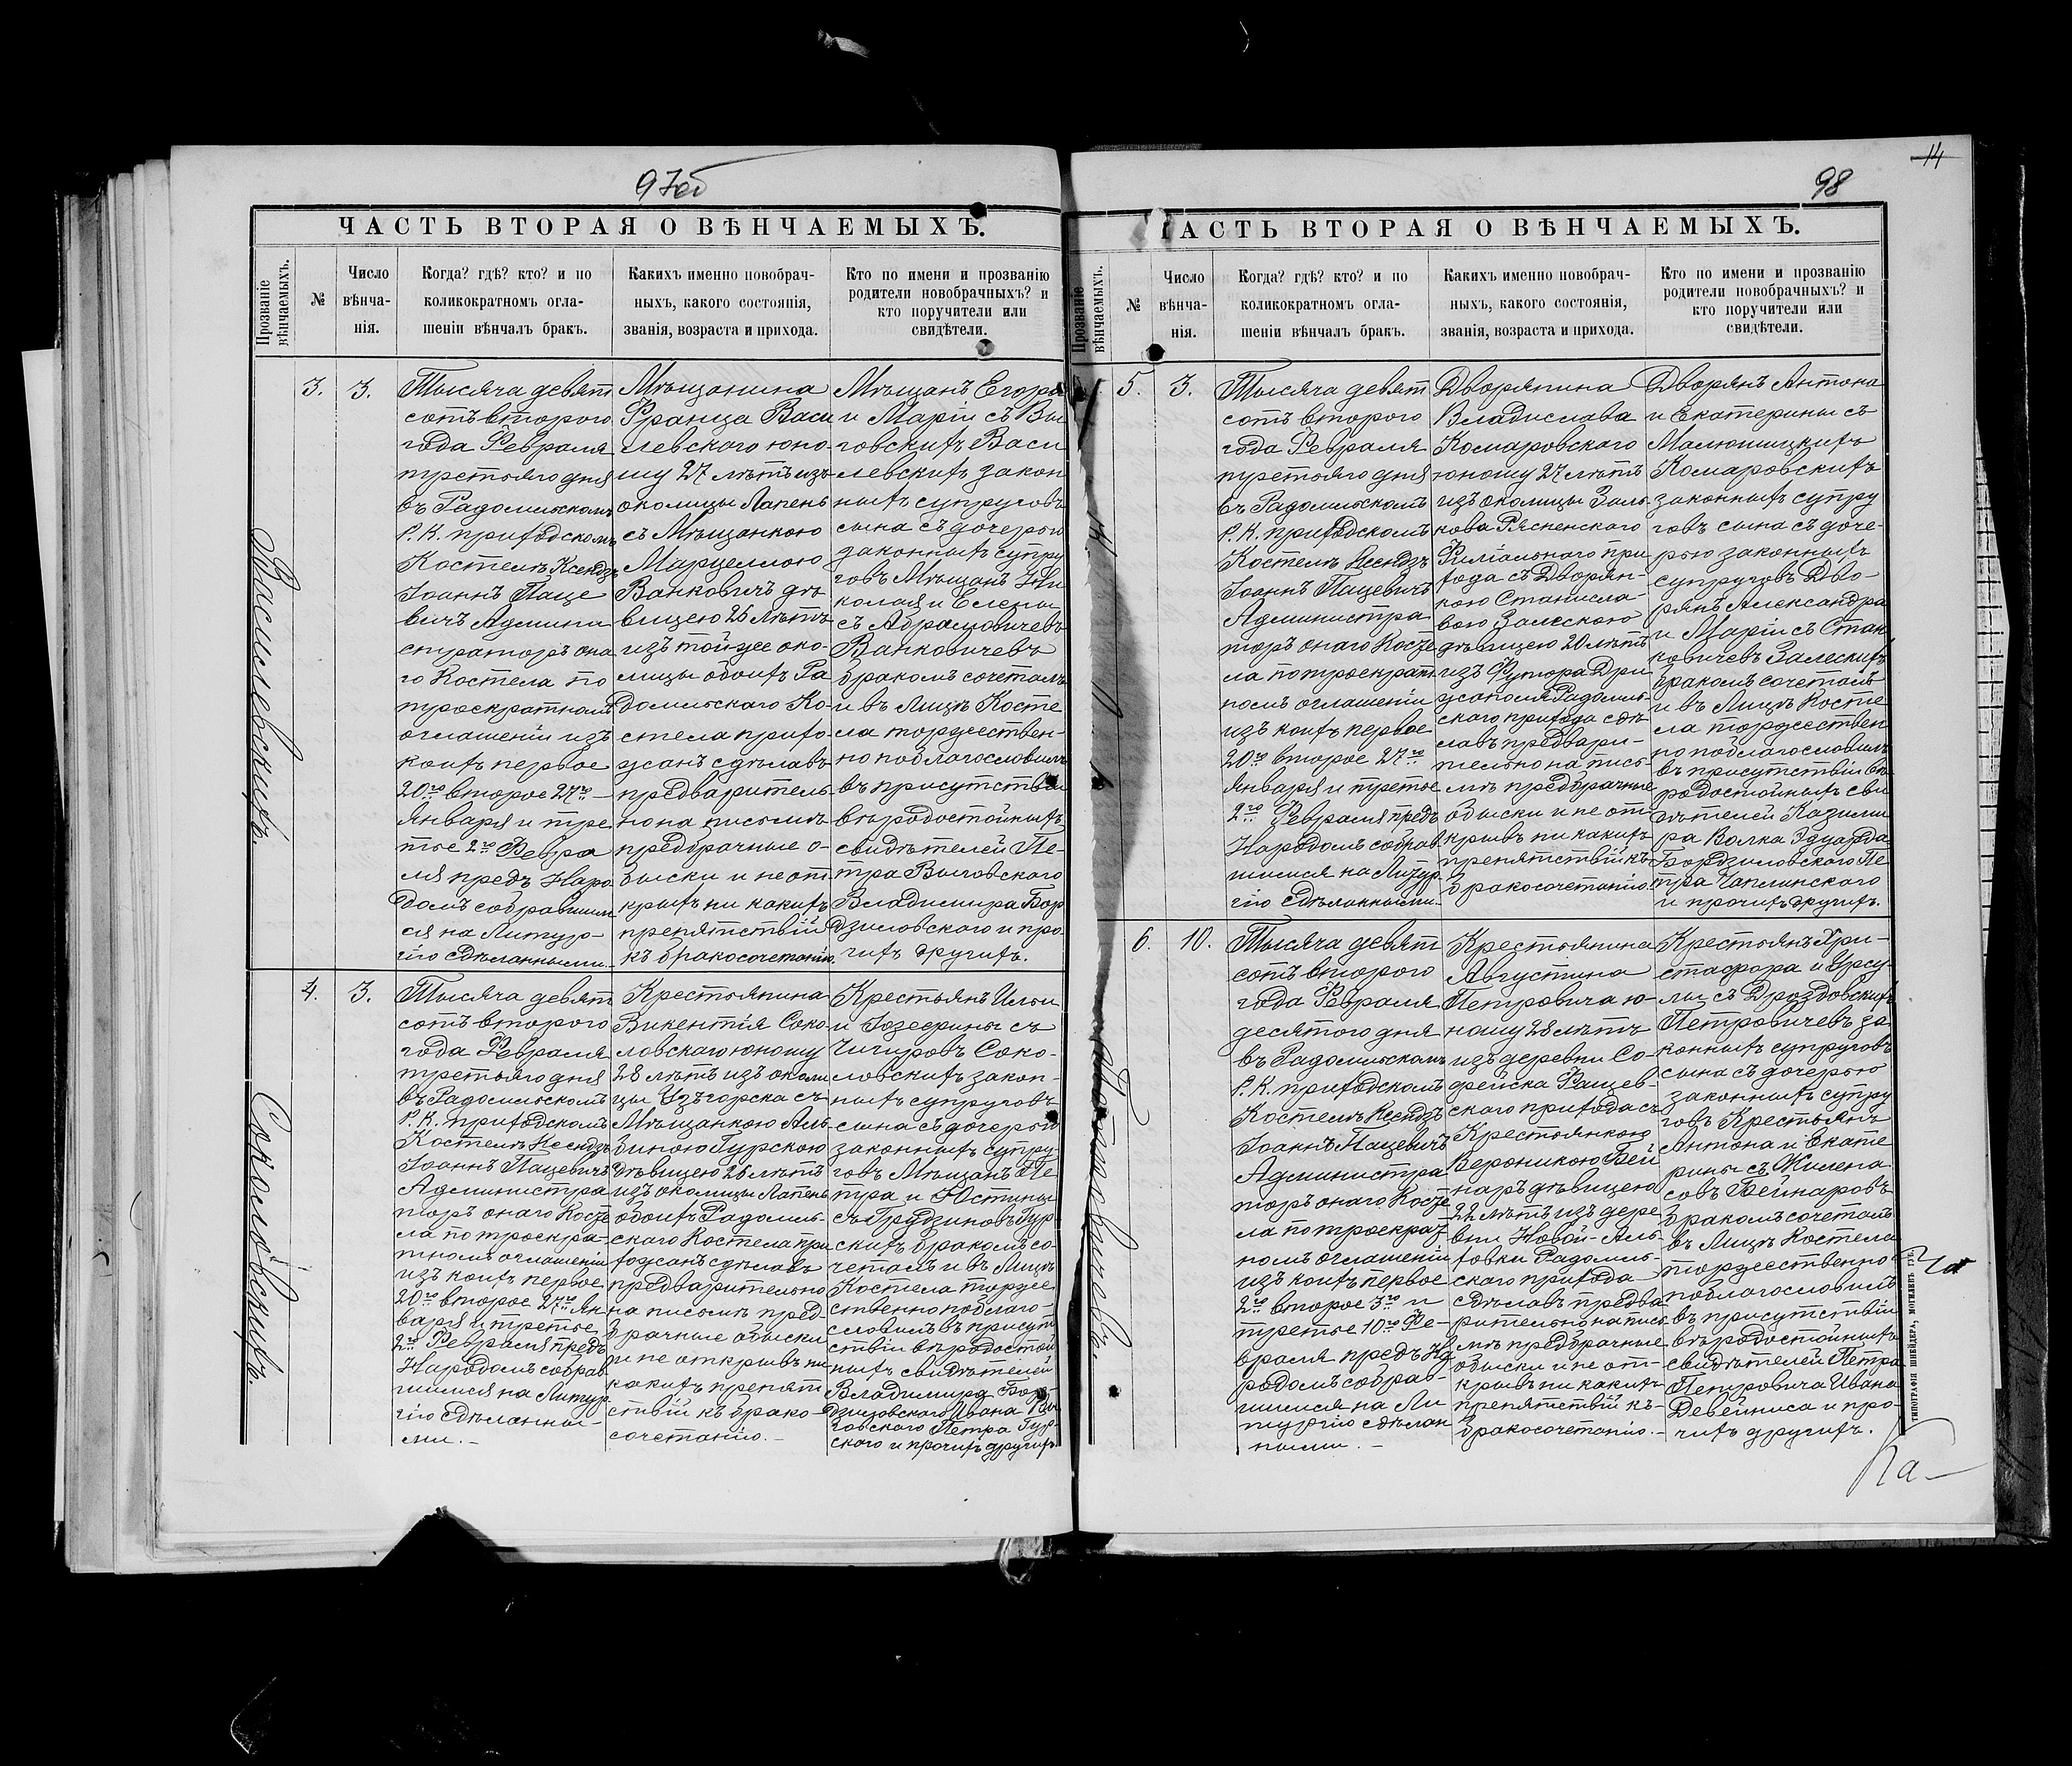 97об
ЧАСТЬ ВТОРАЯ О ВѢНЧАЕМЫХЪ.
Прозваніе вѣнчаемыхъ.
№
Число
вѣнча-
нія.
Когда? гдѣ? кто? и по
коликократномъ огла-
шеніи вѣнчалъ бракъ.
Какихъ именно новобрач-
ныхъ, какого состоянія,
званія, возраста и прихода.
Кто по имени и прозванію
родители новобрачныхъ? и
кто поручители или
свидѣтели.
Василевскихъ.
3.
3.
Тысяча девят
сотъ второго
года Февраля
третьяго дня
въ Радомльскомъ
Р. К. приходскомъ
Костелѣ Ксендзъ
Іоаннъ Паце
вичъ Админи
страторъ она
го Костела по
троекратномъ
оглашеніи изъ
коихъ первое
20го второе 27го
Января и тре
тье 2го Февра
ля предъ Наро
домъ собравшим
ся на Литур-
гію сдѣланными
Мѣщанина
Франца Васи
левскаго юно-
шу 27 лѣтъ изъ
околицы Лапень
съ Мѣщанкою
Марцеллою
Ванковичъ дѣ
вицею 26 лѣтъ
изъ той же око-
лицы обоихъ Ра
домльскаго Ко-
стела прихо-
жанъ сдѣлавъ
предваритель
но на письмѣ
предбрачные о-
быски и не от
крывъ ни какихъ
препятствій
къ бракосочетанію.
Мѣщанъ Егора
и Маріи съ Вы
говскихъ Васи
левскихъ закон
ныхъ супруговъ
сына съ дочерью
законныхъ супру
говъ Мѣщанъ Ни
колая и Елены
съ Абрамовичевъ
Ванковичевъ
бракомъ сочеталъ
и въ Лицѣ Косте
ла торжествен-
но поблагословилъ
въ присутствіи
вѣродостойныхъ
свидѣтелей Пе-
тра Выговского
Владимира Бор
дзиловского и про-
чихъ другихъ.
Соколовскихъ.
4.
3.
Тысяча девят
сотъ второго
года Февраля
третьяго дня
въ Радомльскомъ
Р. К. приходскомъ
Костелѣ Ксендзъ
Іоаннъ Пацевичъ
Администра
торъ онаго Косте
ла по троекра-
тномъ оглашеніи
изъ коихъ первое
20го второе 27го Ян
варя и третье
2го Февраля предъ
Народомъ собрав
шимся на Литур
гію сдѣланны-
ми.
Крестьянина
Викентія Соко
ловскаго юношу
28 лѣтъ изъ околи
цы Узъгорска съ
Мѣщанкою Аль-
биною Гурскою
дѣвицею 26 лѣтъ
изъ околицы Лапень
обоихъ Радомль-
скаго Костела при
хожанъ сдѣлавъ
предварительно
на письмѣ пред-
брачные обыски
и не открывъ ни
какихъ препят
ствій къ брако-
сочетанію.
Крестьянъ Ильи
и Іозефины съ
Чигировъ Соко-
ловскихъ закон-
ныхъ супруговъ
сына съ дочерью
законныхъ супру-
говъ Мѣщанъ Пе
тра и Юстины
съ Грудзиновъ Гур-
скихъ бракомъ со-
четалъ и въ Лицѣ
Костела торже
ственно поблаго-
словилъ въ присут
ствіи вѣродостой
ныхъ свидѣтелей
Владимира Бор
дзиловского Ивана
Петра Гур-
ского и прочихъ другихъ
14
98
ЧАСТЬ ВТОРАЯ О ВѢНЧАЕМЫХЪ.
Прозваніе вѣнчаемыхъ.
№
Число
вѣнча-
нія.
Когда? гдѣ? кто? и по
коликократномъ огла-
шеніи вѣнчалъ бракъ.
Какихъ именно новобрач-
ныхъ, какого состоянія,
званія, возраста и прихода.
Кто по имени и прозванію
родители новобрачныхъ? и
кто поручители или
свидѣтели.
5.
3.
Тысяча девят
сотъ второго
года Февраля
третьяго дня
въ Радомльскомъ
Р. К. приходскомъ
Костелѣ Ксендзъ
Іоаннъ Пацевичъ
Администра
торъ онаго Косте
ла по троекрат
номъ оглашеніи
изъ коихъ первое
20го второе 27го
Января и третье
2го Февраля предъ
Народомъ собрав
шимся на Литур
гію сдѣланными
Дворянина
Владислава
Комаровского
юношу 27 лѣтъ
изъ околицы Заль-
кова Рясненского
Филіальнаго при
хода съ Дворян-
кою Станисла-
вою Залескою
дѣвицею 20 лѣтъ
изъ Футора Дри
Радомль-
скаго прихода сдѣ-
лавъ предвари-
тельно на пись-
мѣ предбрачные
обыски и не от
крывъ ни какихъ
препятствій къ
бракосочетанію.
Дворянъ Антона
и Екатерины съ
Малюшицкихъ
Комаровскихъ
законныхъ супру
говъ сына съ доче-
рью законныхъ
супруговъ Дво-
рянъ Александра
и Маріи съ Стан
ковичевъ Залескихъ
бракомъ сочеталъ
и въ Лицѣ Косте
ла торжествен
но поблагословилъ
въ присутствіи вѣ
родостойныхъ сви
дѣтелей Казими
ра Волка Эдуарда
Бордзиловского Пе
тра Чаплинского
и прочихъ другихъ.
Петровичевъ.
6.
10.
Тысяча девят
сотъ второго
года Февраля
десятого дня
въ Радомльскомъ
Р. К. приходскомъ
Костелѣ Ксендзъ
Іоаннъ Пацевичъ
Администра
торъ онаго Косте
ла по троекрат
номъ оглашеніи
изъ коихъ первое
2го второе 3го и
третье 10го Фе-
враля предъ На
родомъ собрав-
шимся на Ли
тургію сдѣлан
ными.
Крестьянина
Августина
Петровича ю-
ношу 28 лѣтъ
изъ деревни Со-
фейска Фащев-
скаго прихода съ
Крестьянкою
Вероникою Вей
наръ дѣвицею
22 лѣтъ изъ дере
вни Новой-Аль-
товки Радомль-
скаго прихода
сдѣлавъ предва
рительно на пись
мѣ предбрачные
обыски и не от-
крывъ ни какихъ
препятствій къ
бракосочетанію.
Крестьянъ Хри-
стофора и Урсу-
лы съ Дроздовскихъ
Петровичевъ за
конныхъ супруговъ
сына съ дочерью
законныхъ супру
говъ Крестьянъ
Антона и Екате
рины съ Жилена
совъ Вейнаровъ
бракомъ сочеталъ
въ Лицѣ Костела
торжественно
поблагословилъ
въ присутствіи
вѣродостойныхъ
свидѣтелей Петра
Петровича Ивана
Девейниса и про-
чихъ другихъ.
ТИПОГРАФІЯ ШНЕЙДЕРА, МОГИЛЕВЪ ГУБ.
Ка-